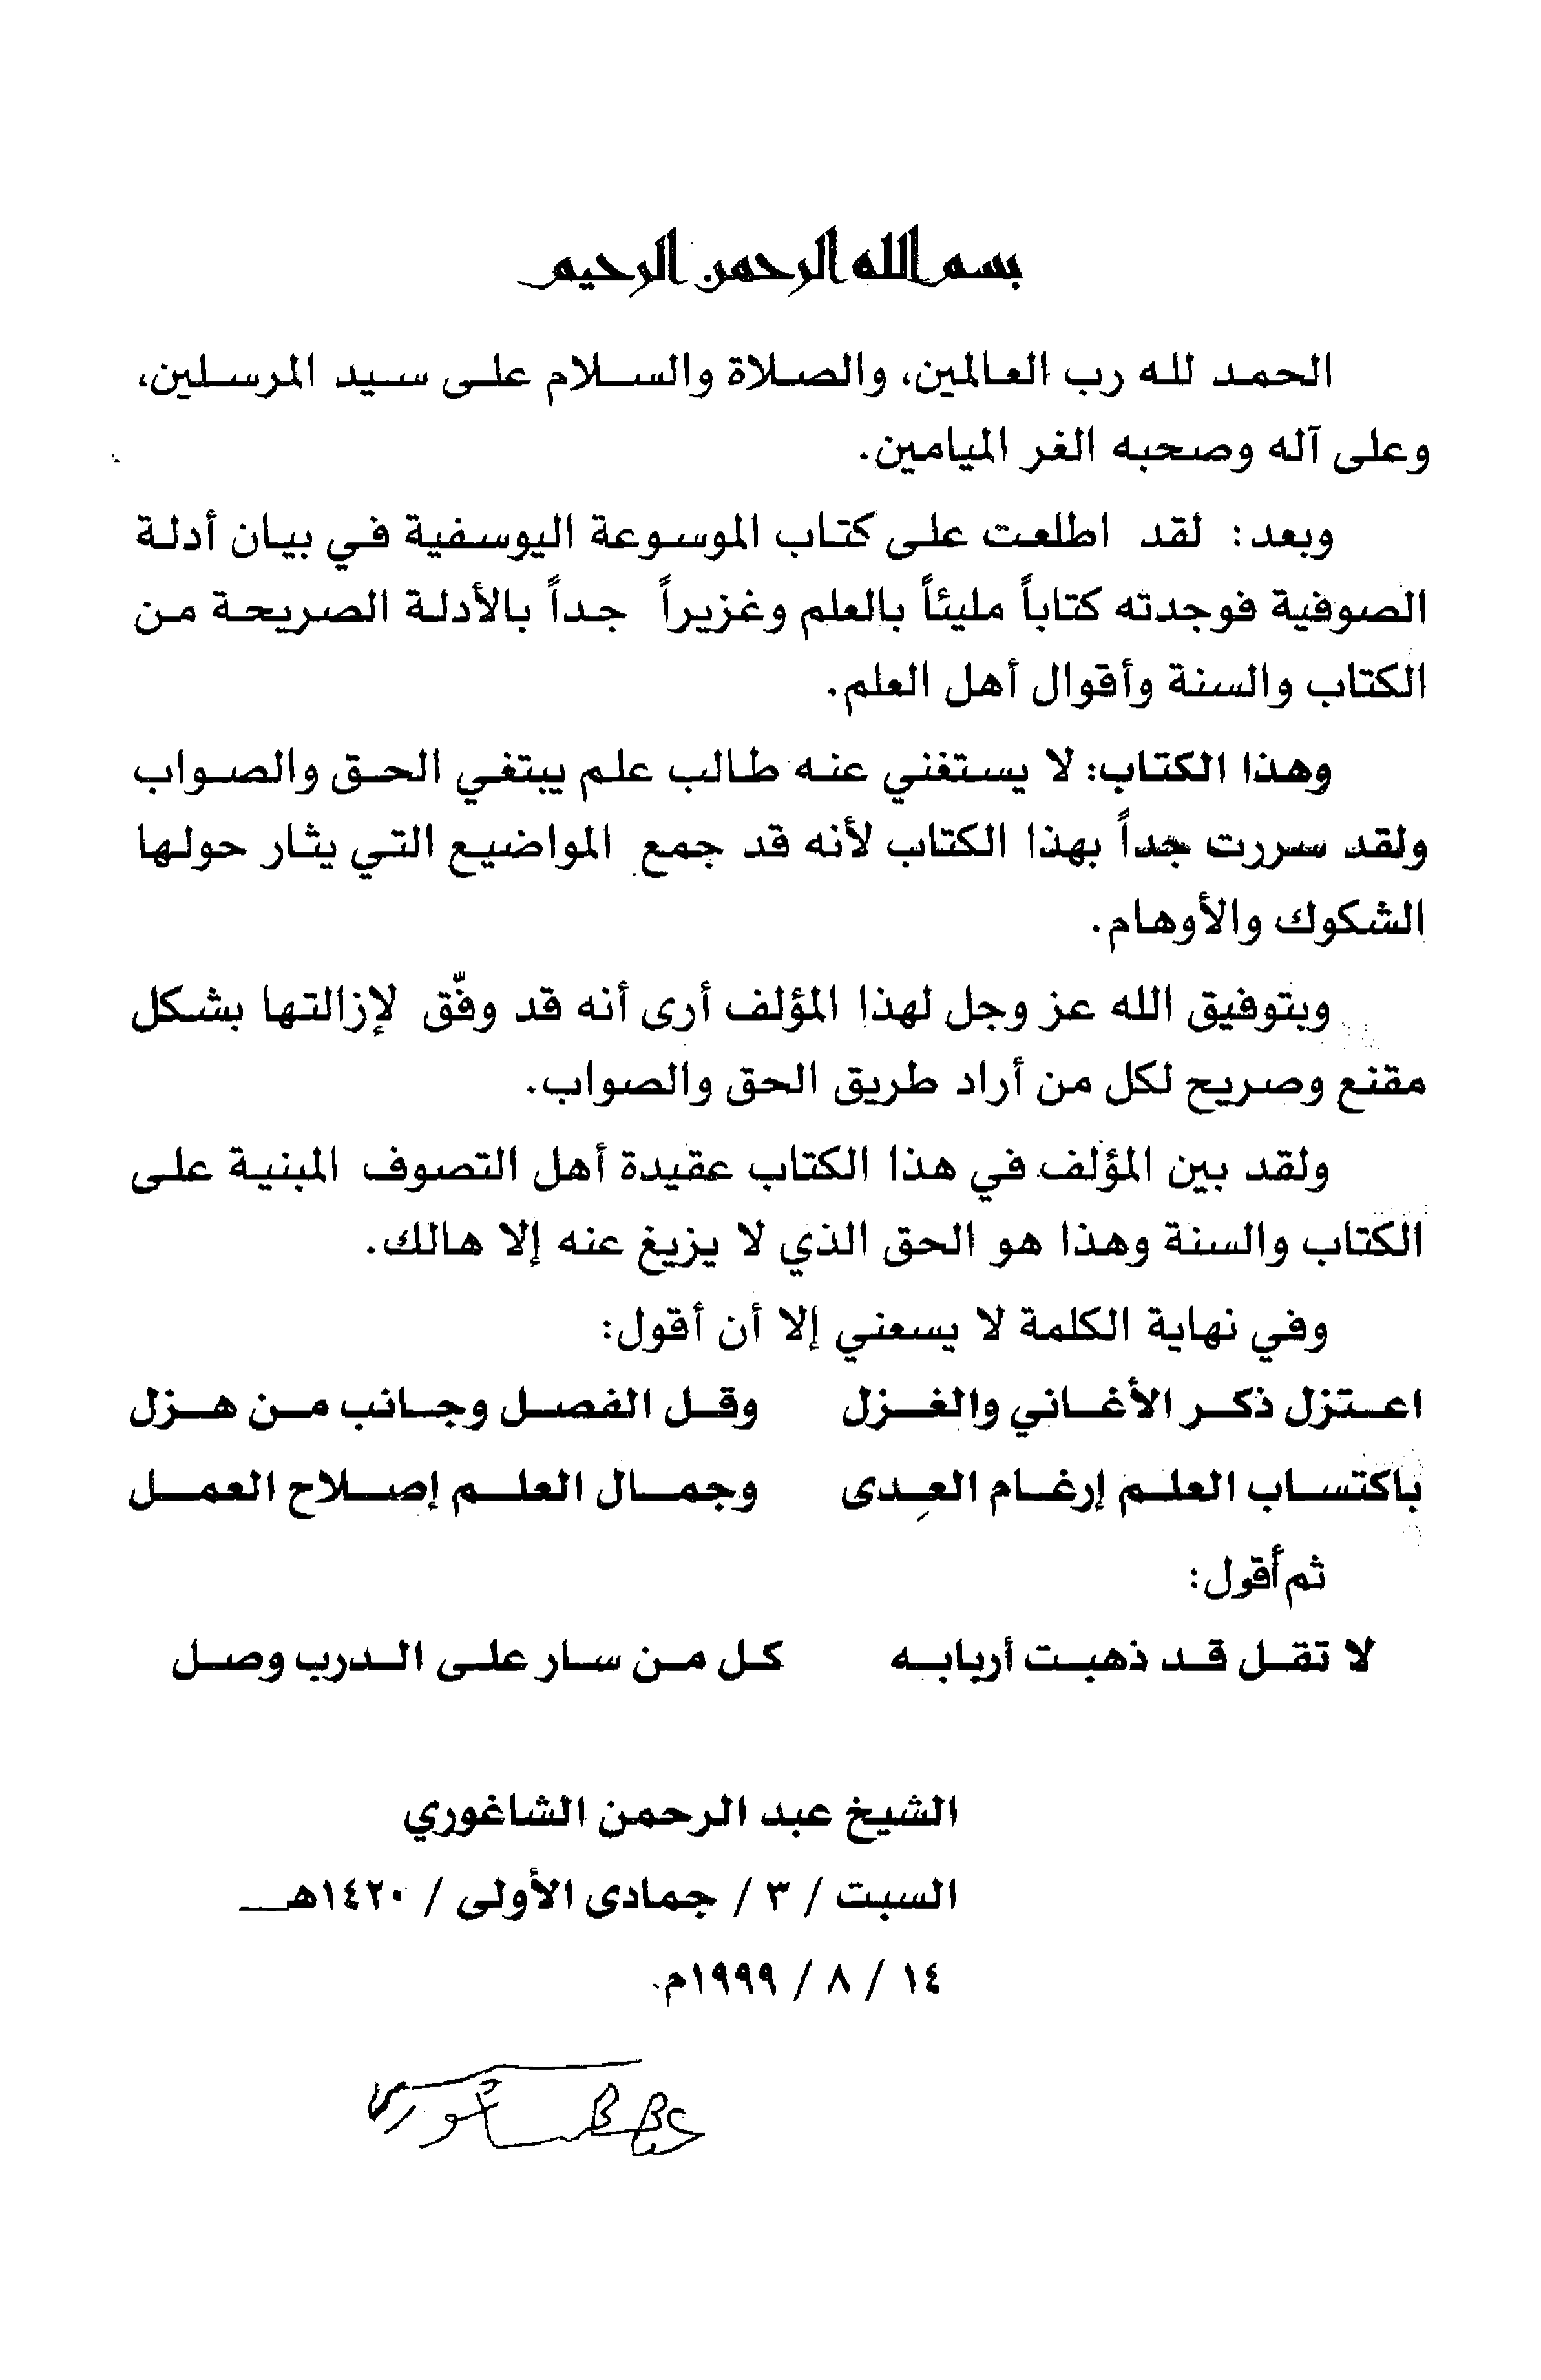 بسم الله الرحمن الرحيم
الحمد لله رب العالمين، والصلاة والسلام على سيد المرسلين،
وعلى آله وصحبه الغر الميامين.
وبعد: لقد اطلعت على كتاب الموسوعة اليوسفية في بيان أدلة
الصوفية فوجدته كتاباً مليئاً بالعلم وغزيراً جداً بالأدلة الصريحة من
الكتاب والسنة وأقوال أهل العلم.
وهذا الكتاب: لا يستغني عنه طالب علم يبتغي الحق والصواب
ولقد سررت جداً بهذا الكتاب لأنه قد جمع المواضيع التي يثار حولها
الشكوك والأوهام.
وبتوفيق الله عز وجل لهذا المؤلف أرى أنه قد وفّق لإزالتها بشكل
مقنع وصريح لكل من أراد طريق الحق والصواب.
ولقد بين المؤلف في هذا الكتاب عقيدة أهل التصوف المبنية على
الكتاب والسنة وهذا هو الحق الذي لا يزيغ عنه إلا هالك.
وفي نهاية الكلمة لا يسعني إلا أن أقول:
اعتزل ذكر الأغاني والغزل وقل الفصل وجانب من هزل
باكتساب العلم إرغام العِدى وجمال العلم إصلاح العمل
ثم أقول:
لا تقل قد ذهبت أربابه كل من سار على الدرب وصل
الشيخ عبد الرحمن الشاغوري
السبت / ٣ / جمادى الأولى / ١٤٢٠هـ
١٤ / ٨ / ١٩٩٩م.